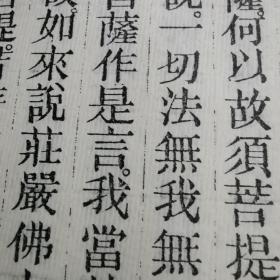 薩。何以故須菩提
說。一切法無我無
菩薩作是言。我當
故。如來說莊嚴佛